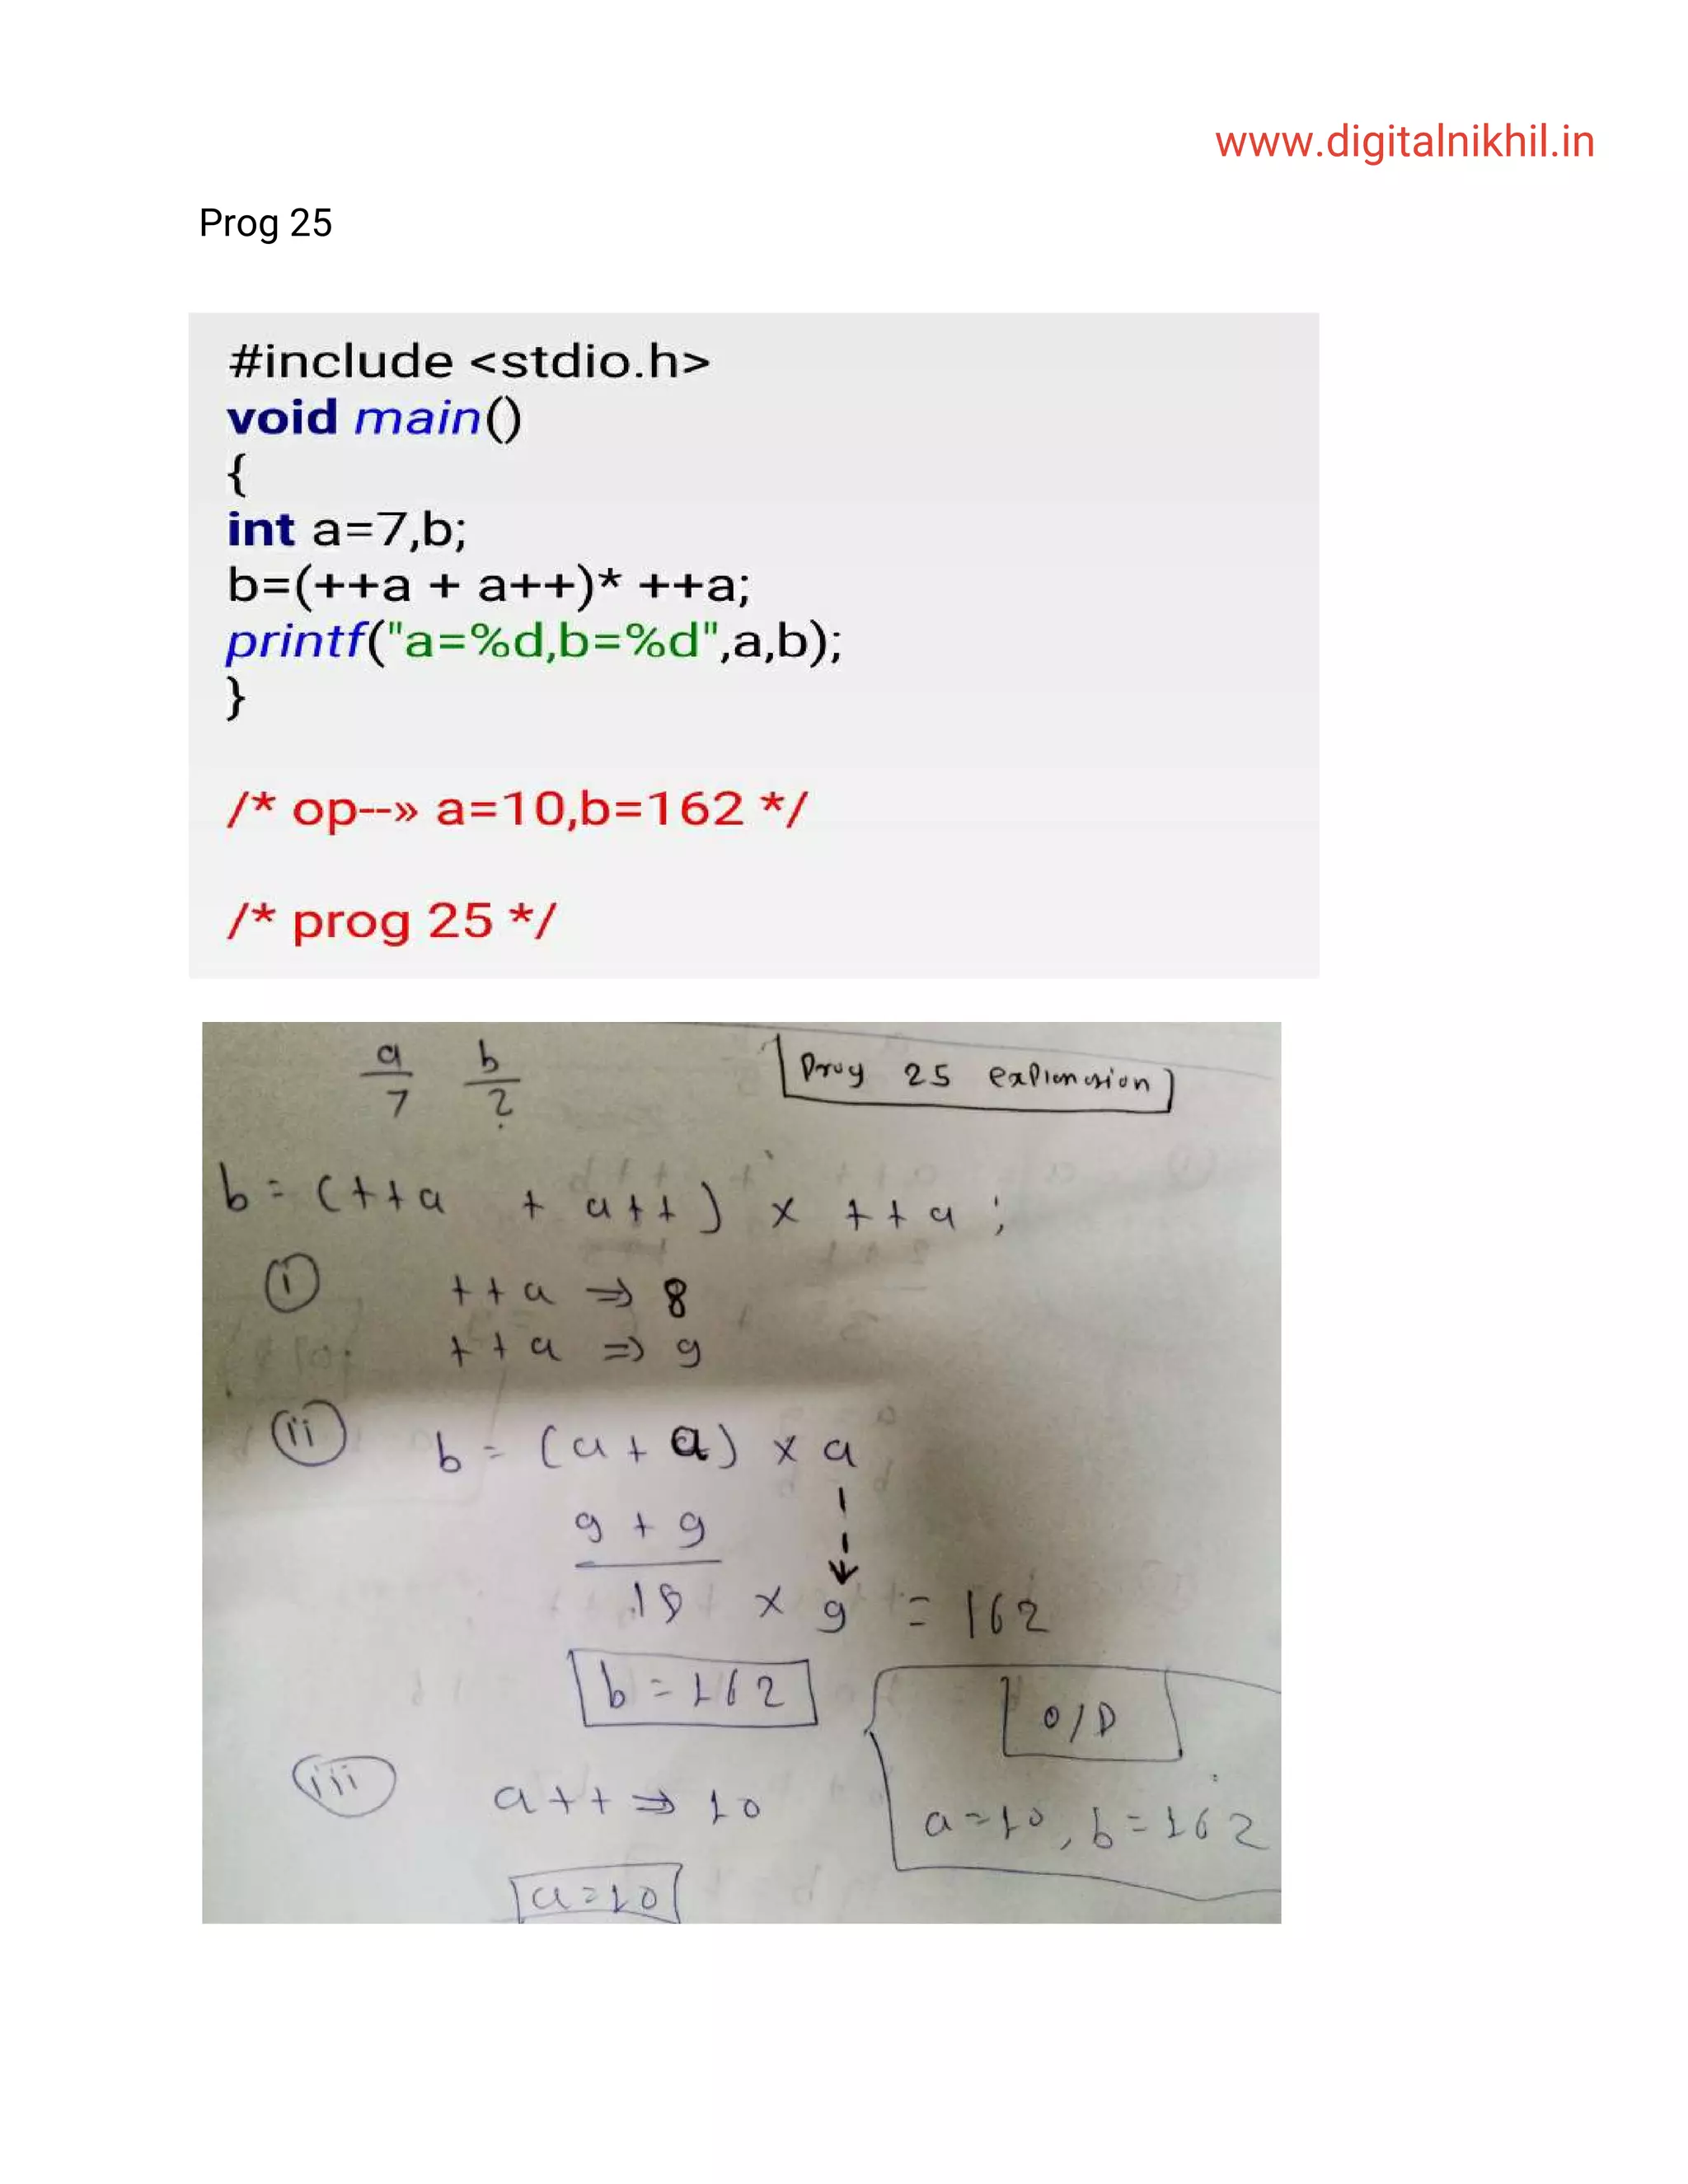 www.digitalnikhil.in
Prog 25
#include <stdio.h>
void main()
{
int a=7,b;
b=(++a + a++)* ++a;
printf("a=%d,b=%d",a,b);
}
/* op--» a=10,b=162 */
/* prog 25 */
a b
7 ?
Prog 25
b = (++a + a++) × ++a ;
i ++a ⇒ 8
++a ⇒ 9
ii b = (a + a) × a
9 + 9
18 × 9 = 162
b = 162
O/P
iii a++ ⇒ 10
a=10, b=162
a=10